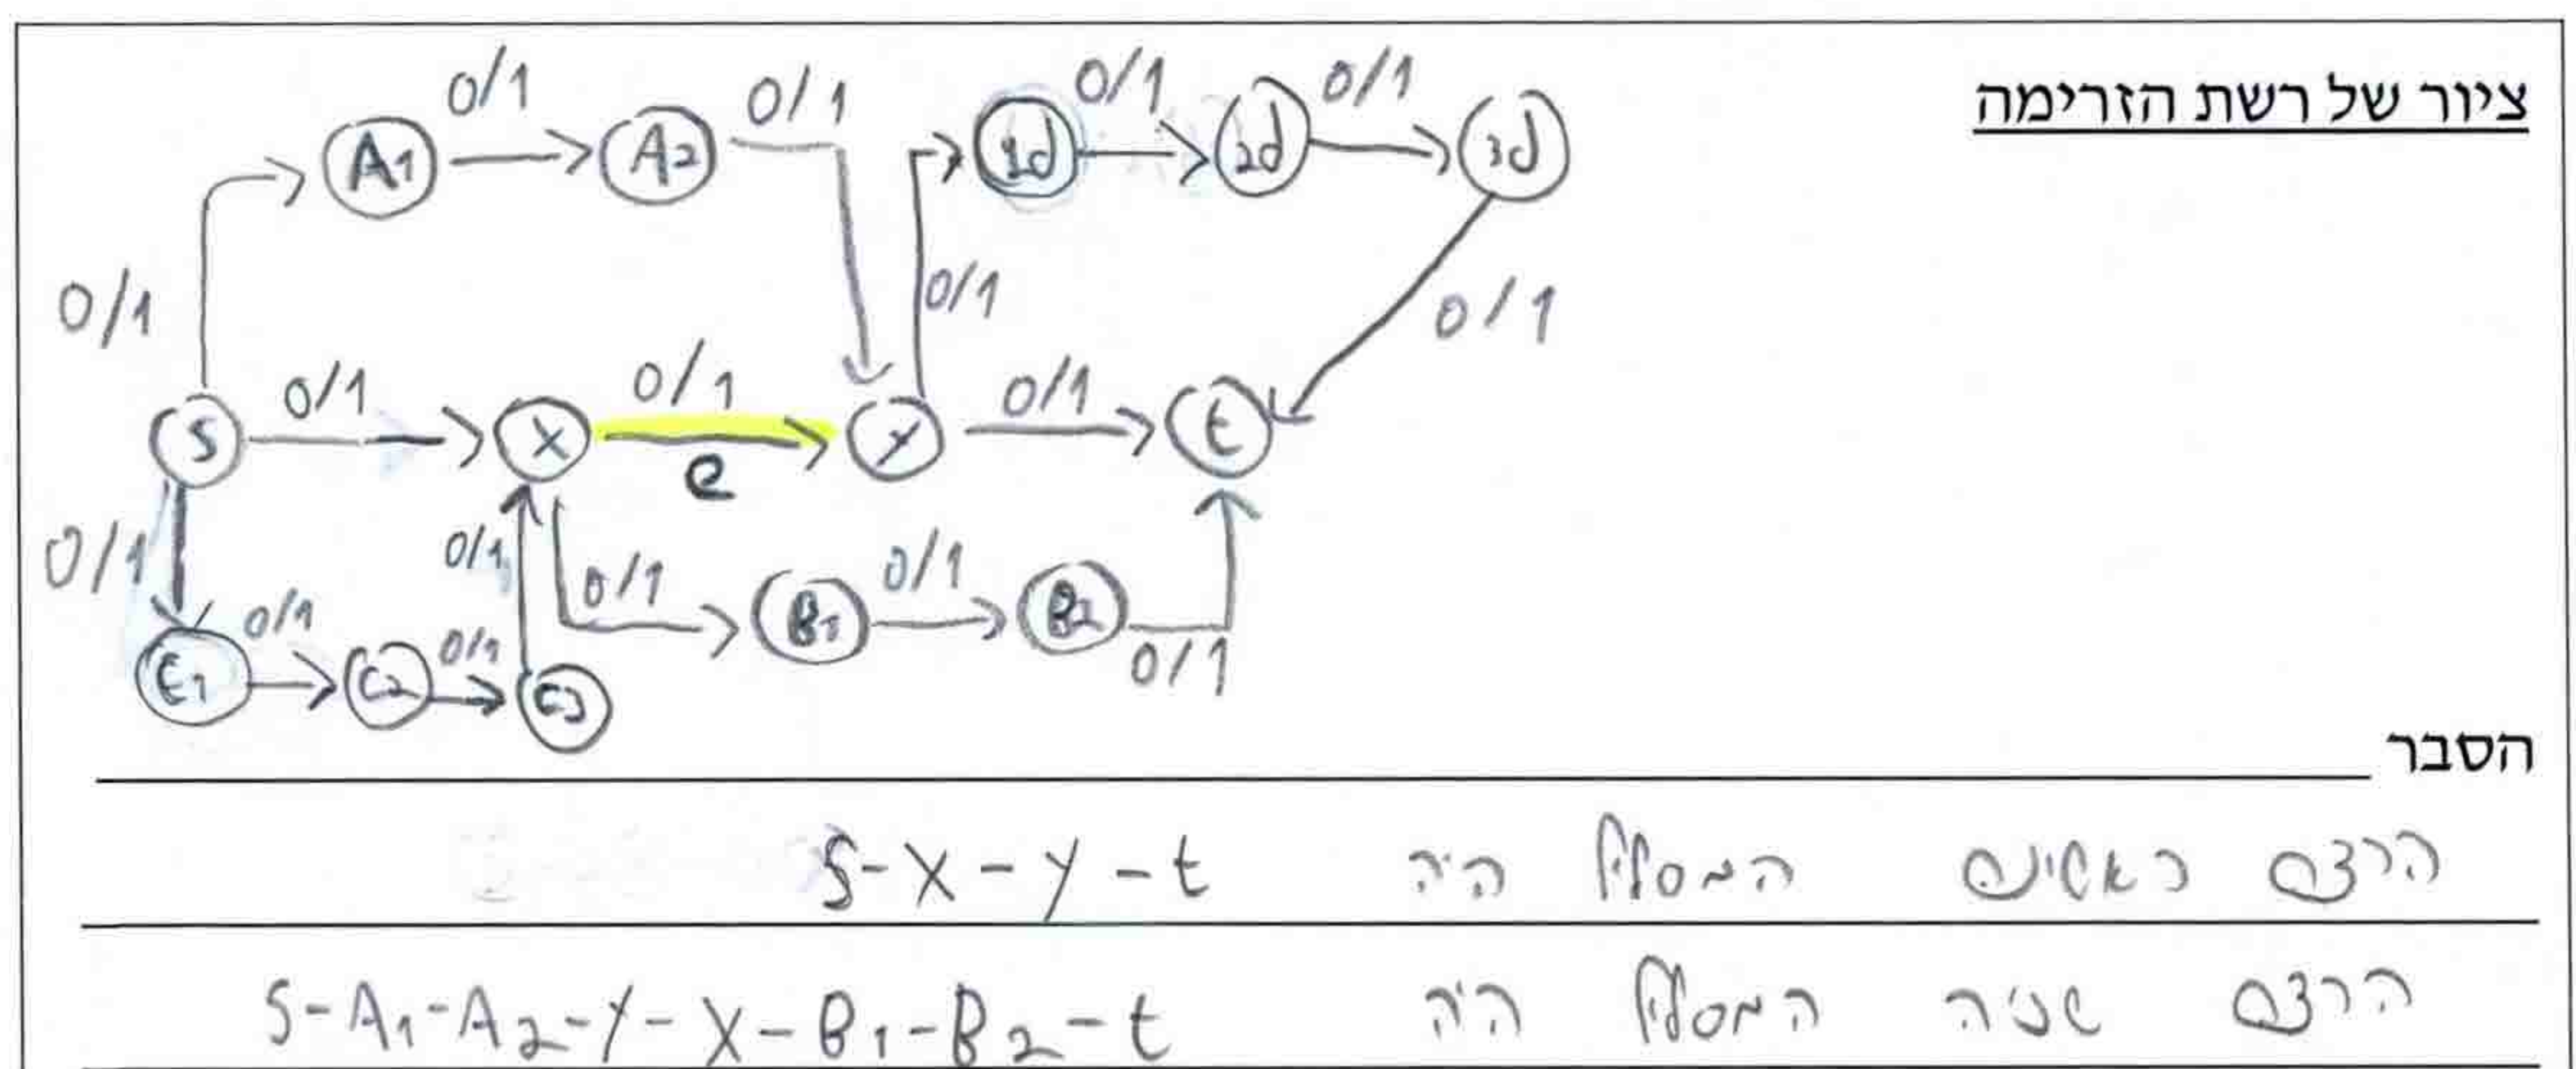 ציור של רשת הזרימה
0/1 0/1 0/1 0/1
A1 A2 1d 2d 3d
0/1 0/1 0/1
0/1 0/1 0/1
S X e Y t
0/1 0/1 0/1 0/1
0/1 0/1 B1 B2 0/1
C1 C2 C3
הסבר
הרצה ראשונה המסלול היה S-X-y-t
הרצה שניה המסלול היה S-A1-A2-Y-X-B1-B2-t